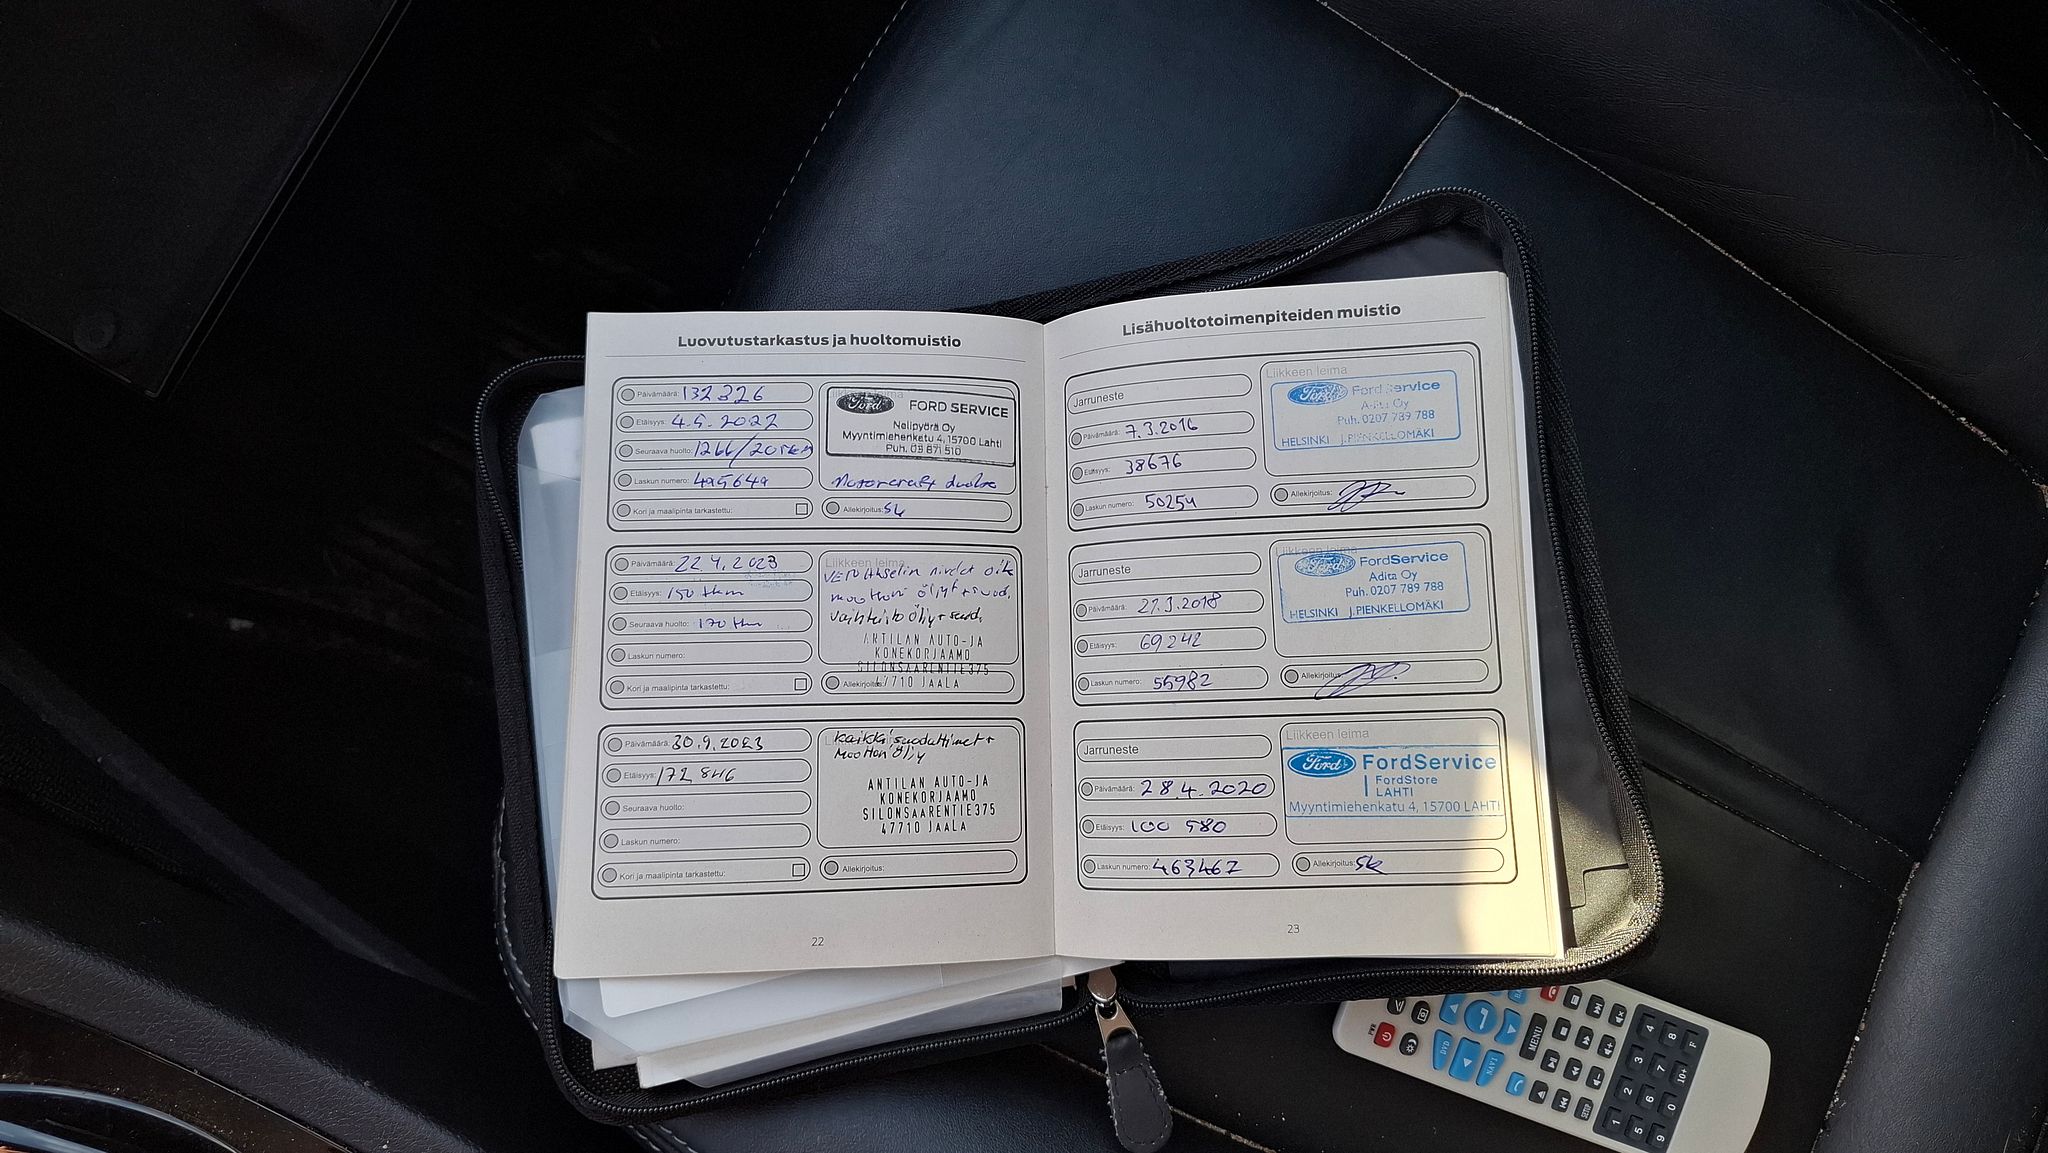 Luovutustarkastus ja huoltomuistio
Päivämäärä: 132326
Etäisyys: 4.5.2022
Seuraava huolto: 1266/20tkm
Laskun numero:
Kori ja maalipinta tarkastettu:
Ford FORD SERVICE
Nelipyörä Oy
Myyntimiehenkatu 4, 15700 Lahti
Puh. 03 871 510
Motorcraft
Allekirjoitus: SK
Päivämäärä: 22.4.2023
Etäisyys: 150 tkm
Seuraava huolto: 170 tkm
Laskun numero:
Kori ja maalipinta tarkastettu:
Liikkeen leima
VETOAkselin nivelet oik
moottori öljyt + suod.
vaihteisto öljy + suod.
ANTILAN AUTO-JA
KONEKORJAAMO
SILONSAARENTIE375
47710 JAALA
Allekirjoitus:
Päivämäärä: 30.9.2023
Etäisyys: 172 846
Seuraava huolto:
Laskun numero:
Kori ja maalipinta tarkastettu:
Kaikki suodattimet +
moottoriöljy
ANTILAN AUTO-JA
KONEKORJAAMO
SILONSAARENTIE375
47710 JAALA
Allekirjoitus:
22
Lisähuoltotoimenpiteiden muistio
Jarruneste
Päivämäärä: 7.3.2016
Etäisyys: 38676
Laskun numero: 50254
Liikkeen leima
Ford FordService
Adita Oy
Puh. 0207 789 788
HELSINKI J.PIENKELLOMÄKI
Allekirjoitus:
Jarruneste
Päivämäärä: 27.3.2018
Etäisyys: 69242
Laskun numero: 55982
Liikkeen leima
Ford FordService
Adita Oy
Puh. 0207 789 788
HELSINKI J.PIENKELLOMÄKI
Allekirjoitus:
Jarruneste
Päivämäärä: 28.4.2020
Etäisyys: 100 580
Laskun numero: 463467
Liikkeen leima
Ford FordService
FordStore
LAHTI
Myyntimiehenkatu 4, 15700 LAHTI
Allekirjoitus: SK
23
PWR
DVD
NAVI
MENU
SETUP
4 8 F
3 7 10+
2 6 0
1 5 9